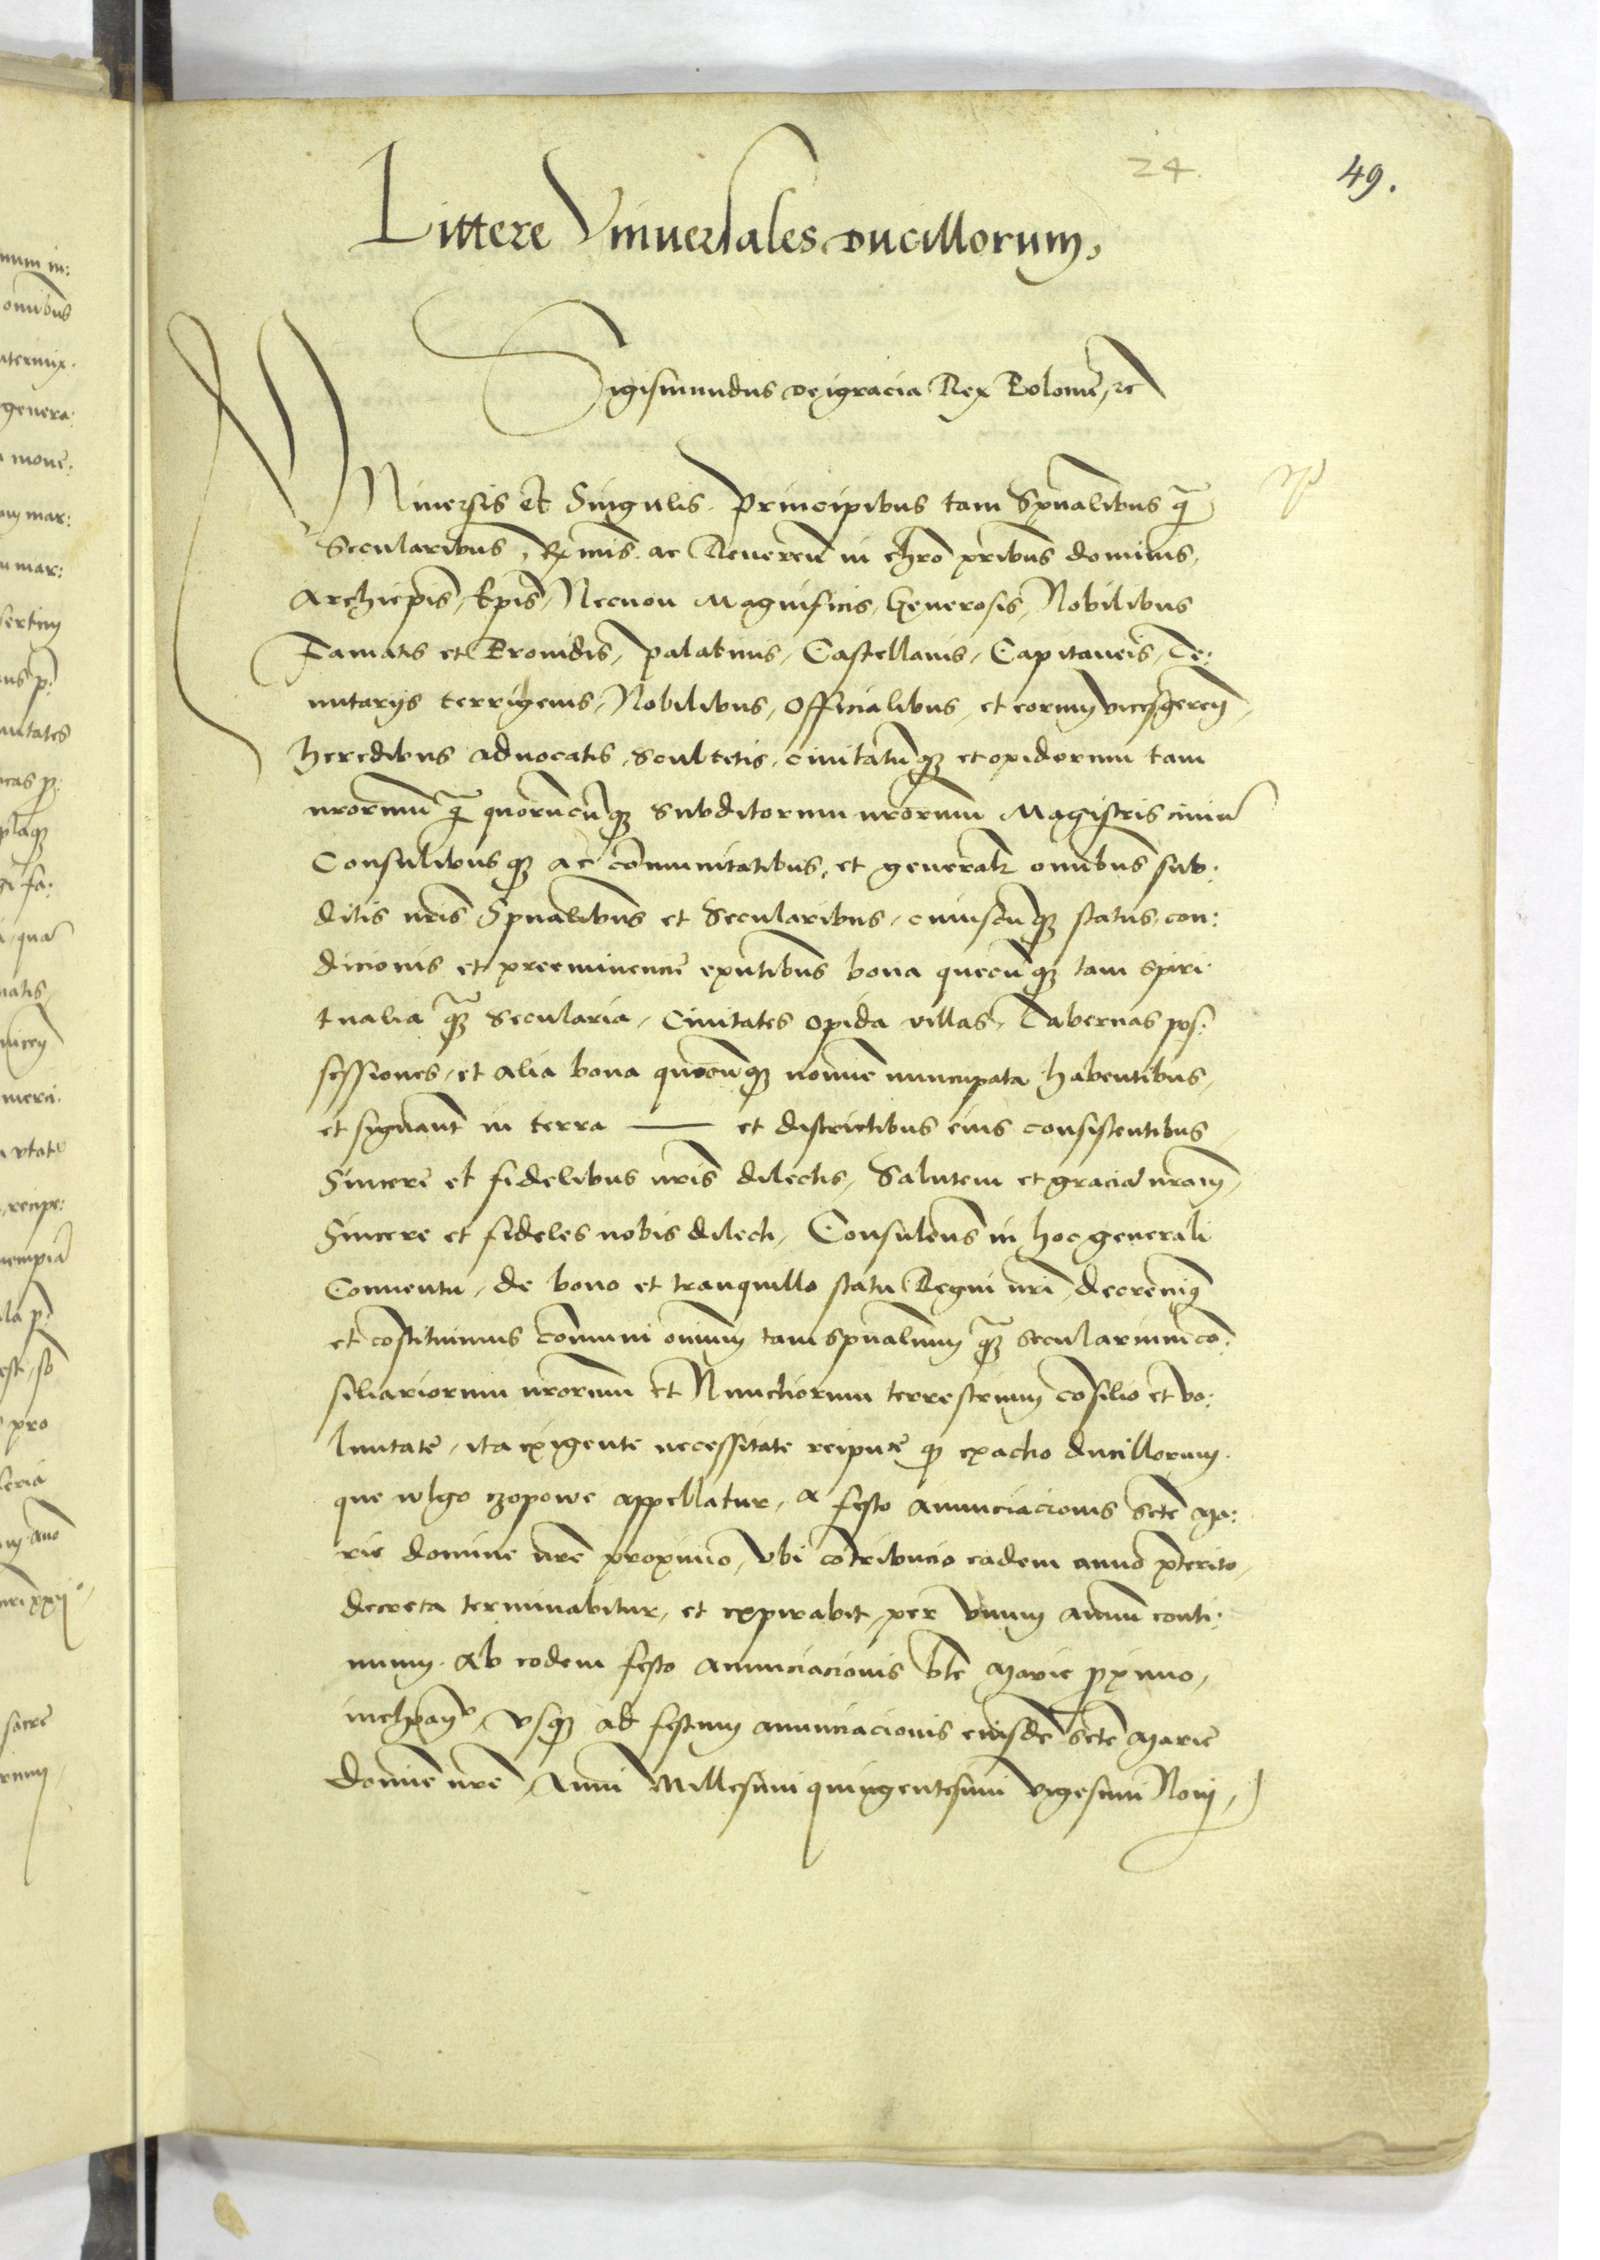 24.
49.
Littere Vniuersales ducillorum,
Sigismundus dei gracia Rex Polonie, ꝛc
VNiuersis et Singulis Principibus tam Spūalibus q̃
Secularibus, Rmis ac Reueren̄ in chrō pr̄ibus dominis,
Archiep̄is, Ep̄is, Necnon Magnificis, Generosis, Nobilibus
Famatis et Prouidis, palatinis, Castellanis, Capitaneis, Te:
nutarijs terrigenis, Nobilibus, Officialibus, et eorum vicesgeren̄,
heredibus aduocatis, Scultetis, ciuitatūqꝫ et opidorum tam
nr̄orum q̃ quorūcūqꝫ Subditorum nr̄orum Magistris ciuiū
Consulibusqꝫ ac cōmunitatibus, et general̄r om̄ibus sub:
ditis nr̄is Spūalibus et Secularibus, cuiuscūqꝫ status, con:
dicionis et preeminencie exn̄tibus bona quecūqꝫ tam spiri
tualia qꝫ̃ Secularia, Ciuitates opida villas, Tabernas pos:
sessiones, et alia bona quocūqꝫ nomine nuncupata habentibus,
et signant̄ in terra —— et districtibus eius consistentibus,
Sincere et fidelibus nr̄is dilectis, Salutem et graciā nr̄am,
Sincere et fideles nobis dilecti, Consulen̄s in hoc generali
Conuentu, de bono et tranquillo statu Regni nr̄i, decreuim⁹
et cōstituimus cōmuni om̄ium tam spūalium qꝫ̃ secularium cō:
siliariorum nr̄orum et Nunctiorum terrestrium cōsilio et vo:
luntate, ita exigente necessitate reipu^ce qꝫ exactio ducillorum
que wlgo czopowe appellatur, a festo anunciacionis sctē Ma:
rie domine nr̄e proximo, vbi cōtribucio eadem anno p̄terito,
decreta terminabitur, et expirabit, per vnum annū conti:
nuum. ab eodem festo anunciacionis bt̄e Marie ꝓximo,
vsqꝫ ad festum anunciacionis eiusdē sctē Marie
Domine nr̄e, Anni Millesimi quingentesimi vigesimi Noni,